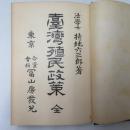 法學士 持地六三郎著
臺灣殖民政策 全
東京 合資會社 冨山房發兌